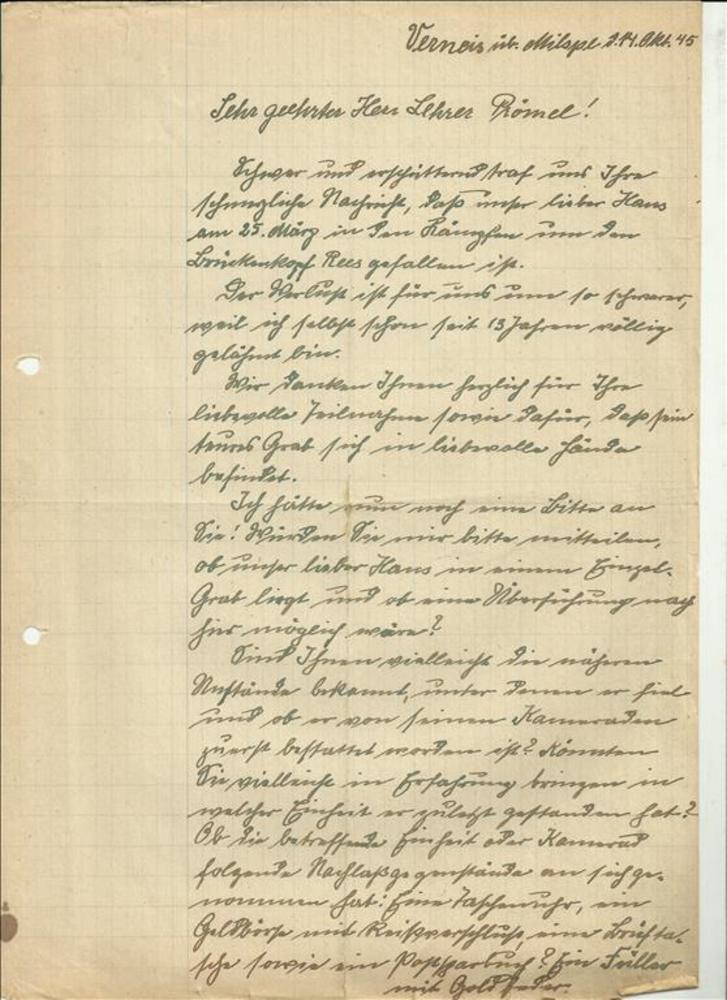 Verneis üb. Milspe d. 14. Okt. 45
Sehr geehrter Herr Lehrer Römel!
Schwer und erschütternd traf uns Ihre
schmerzliche Nachricht, daß unser lieber Hans
am 25. März in den Kämpfen um den
Brückenkopf Rees gefallen ist.
Der Verlust ist für uns um so schwerer,
weil ich selbst schon seit 13 Jahren völlig
gelähmt bin.
Wir danken Ihnen herzlich für Ihre
liebevolle Teilnahme sowie dafür, daß sein
teures Grab sich in liebevolle Hände
befindet.
Ich hätte nun noch eine Bitte an
Sie! Würden Sie mir bitte mitteilen,
ob unser lieber Hans in einem Einzel-
Grab liegt und ob eine Überführung nach
hier möglich wäre?
Sind Ihnen vielleicht die näheren
Umstände bekannt, unter denen er fiel
und ob er von seinen Kameraden
zuerst bestattet worden ist? Könnten
Sie vielleicht in Erfahrung bringen in
welcher Einheit er zuletzt gestanden hat?
Ob die betreffende Einheit oder Kamerad
folgende Nachlaßgegenstände an sich ge-
nommen hat: Eine Taschenuhr, ein
Geldbörse mit Reißverschluß, eine Briefta-
sche sowie ein Postsparbuch? Ein Füller
mit Goldfeder.